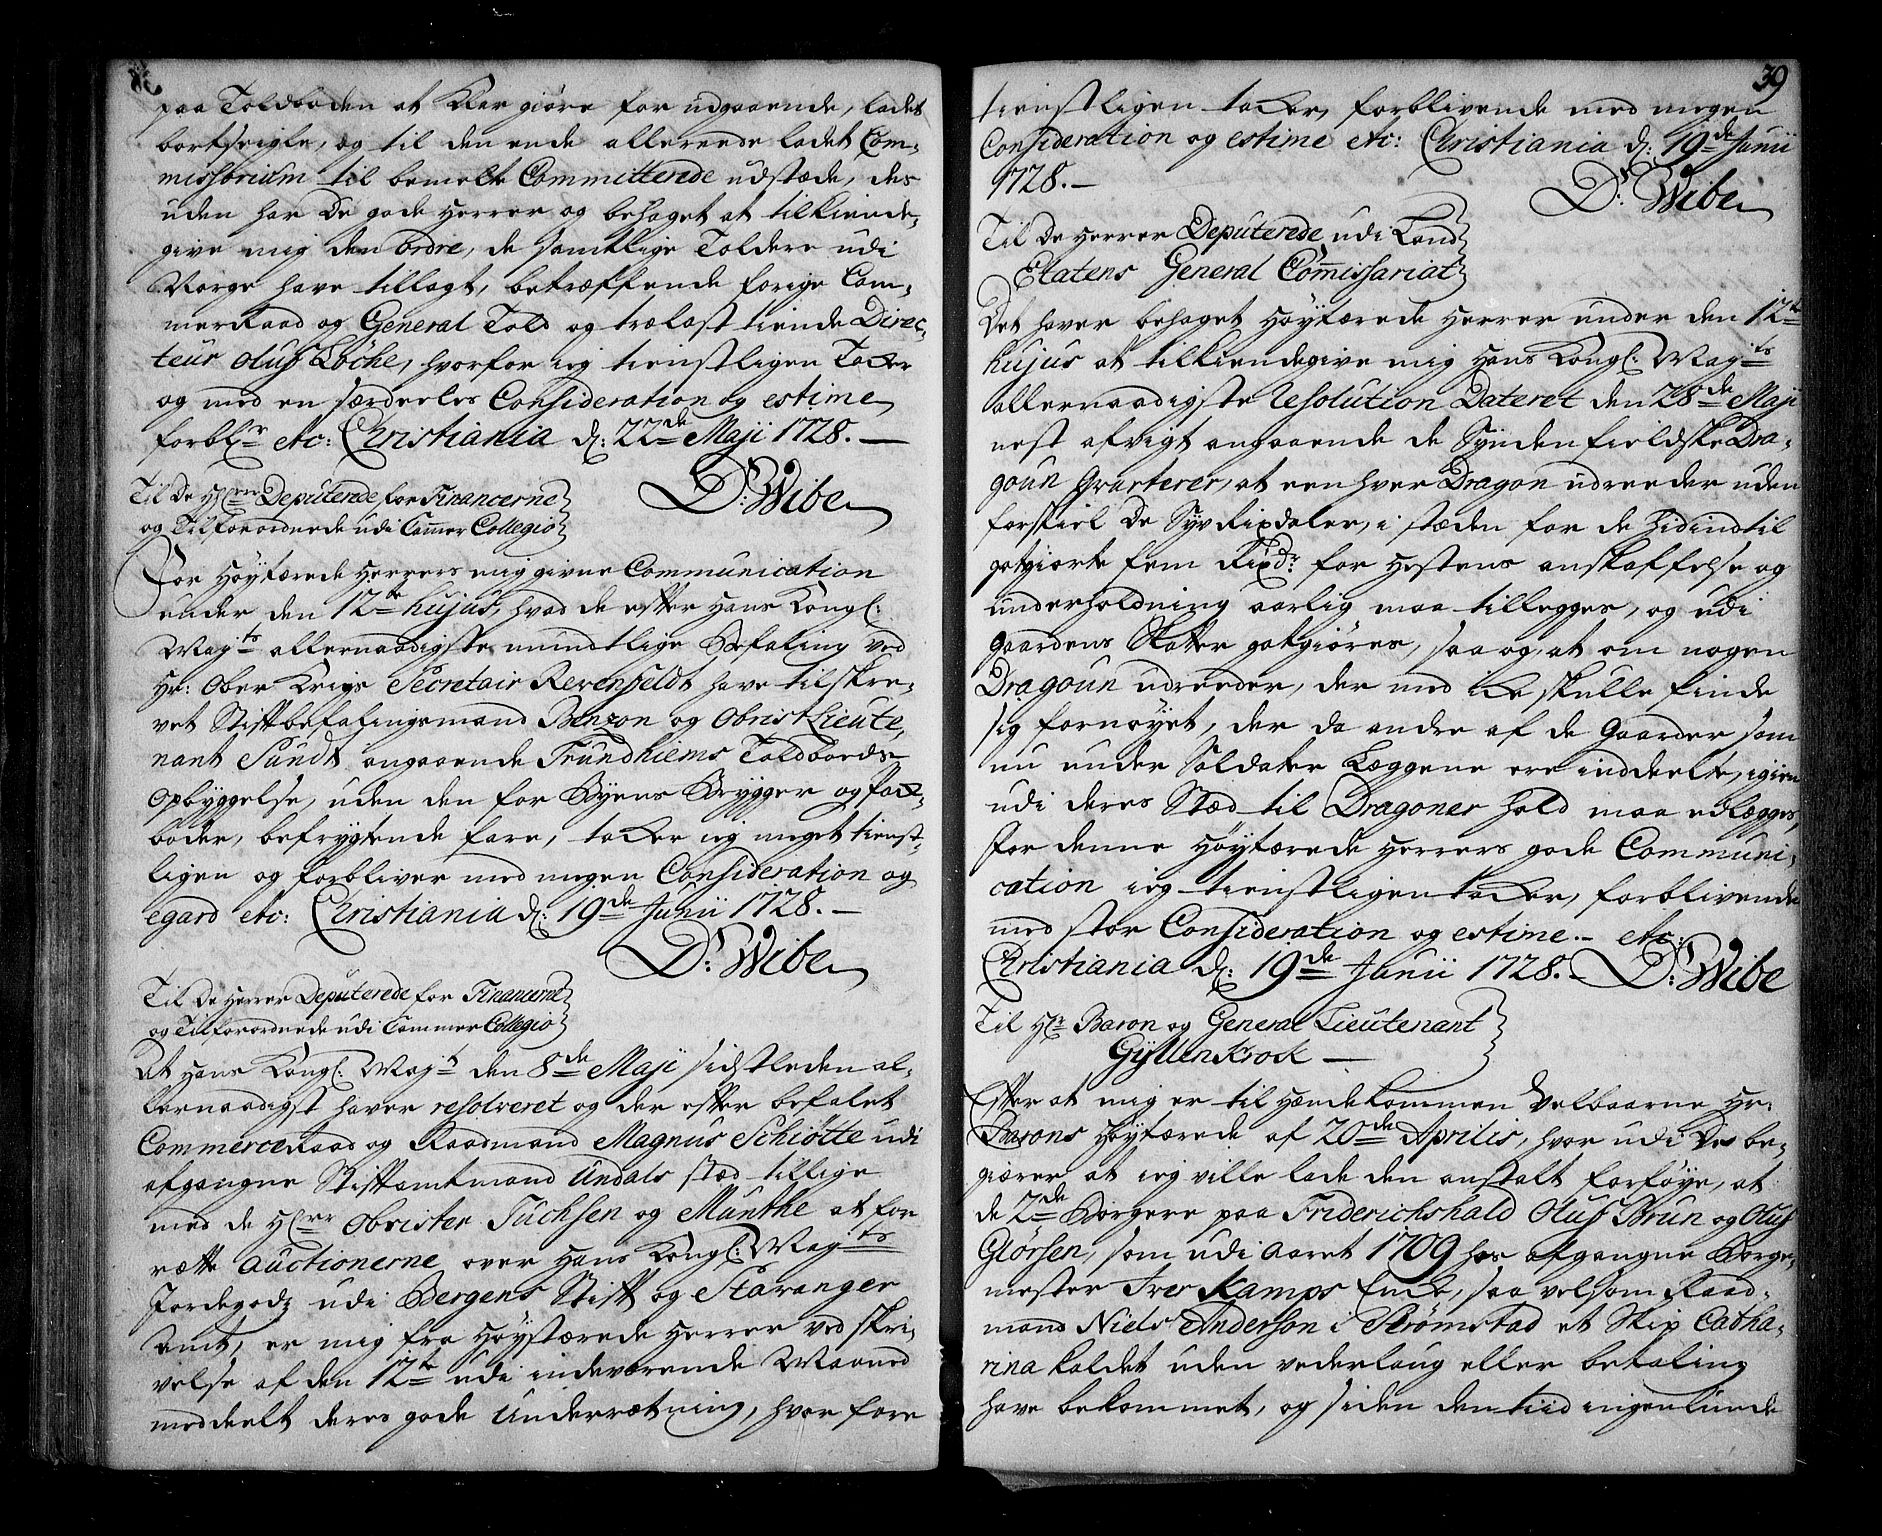 paa Toldboden at klargiøre for udgaaende, ladet
bortseigle, og til den ende allereede ladet Com-
missorium til bemelte Committerede udstæde, des
uden har De gode Herrer og behaget at tilkiende-
give mig den ordre, de samtlige Toldere udi
Norge have tillagt, betræffende forige Com-
merRaad og General Told og trælast tiende Direc-
teur Oluf Löche, hvorfor ieg tienstligen Tacker
og med en særdeeles Consideration og estime
forbl:r etc: Christiania d: 22de Maji 1728. —
D: Wibe
Til De H:rrer Deputerede for Financerne
og Tilforordnede udi Cammer Collegio
For Høytærede Herrers mig givne Communication
under den 12te hujus, hvad de efter Hans Kongl:
May:ts allernaadigste mundtlige Befaling ved
Hr: Ober Krigs Secretair Revenfeldt have tilskre-
vet Stiftbefalingsmand Benzon og Obrist Lieute-
nant Sundt angaaende Trundhiems Toldboeds
Opbyggelse, uden den for Byens Brygger og Pack-
boder, befrygtende fare, tacker ieg meget tienst-
ligen og forbliver med megen Consideration og
egard etc: Christiania d: 19de Junii 1728. —
D: Wibe
Til De Herrer Deputerede for Financerne
og Tilforordnede udi Cammer Collegio
At Hans Kongl: May:t den 8de Maji sidstleden al-
lernaadigst haver resolveret og der efter befalet
CommerceRaad og Raadmand Magnus Schiøtte udi
afgangne Stiftamtmand Undals stæd tillige
med de H:rr Obrister Tuchsen og Munthe at for
rette Auctionerne over Hans Kongl: May:ts
Jordegodz udi Bergens Stift og Stavanger
Amt, er mig fra Høystærede Herrer ved skri-
velse af den 12te udi indeværende Maaned
meddeelt deres gode Underretning, hvor fore
39
tienstligen tacker, forblivende med megen
Consideration og estime etc: Christiania d: 19de Junii
1728. —
D: Wibe
Til De Herrer Deputerede udi Land
Etatens General Commissariat
Det haver behaget Høytærede Herrer under den 12te
hujus at tilkiendegive mig Hans Kongl: May:ts
allernaadigste Resolution Dateret den 28de Maji
nest afvigt angaaende de Syndenfieldske Dra-
goun Qvarterer, at een hver Dragon udreeder uden
forskiel De Syv Rixdaler, i stæden for de hidindtil
gotgiorte fem Rixd:r for Hestens anskaffelse og
underholdning aarlig maa tillegges, og udi
Gaardens Skatter gotgiøres, saa og, at om nogen
Dragoun udreeder, der med icke skulle finde
sig fornøyet, der da andre af de Gaarder som
nu under Soldater Læggene ere inddeelte, igien
udi deres Stæd til Dragoner hold maa udlægges,
for denne Høytærede Herrers gode Communi-
cation ieg tienstligen tacker, forblivende
med stor Consideration og estime. — etc:
Christiania d: 19de Junii 1728. — D: Wibe
Til H:r Baron og General Lieutenant
Gyllenkrock —
Efter at mig er til Hænde kommen Velbaarne Hr:
Barons Høytærede af 20de Aprilis, hvor udi Des be-
giærer at ieg ville lade den anstalt forføye, at
de 2de Borgere paa Friderichshald Oluf Brun og Oluf
Glørsen, som udi Aaret 1709 hos afgangne Borge-
mester Iver Kamps Encke, saa velsom Raad-
mand Niels Anderson i Strømstad et Skip Catha-
rina kaldet uden vederlaug eller betaling
have bekommet, og siden den tiid ingenlunde